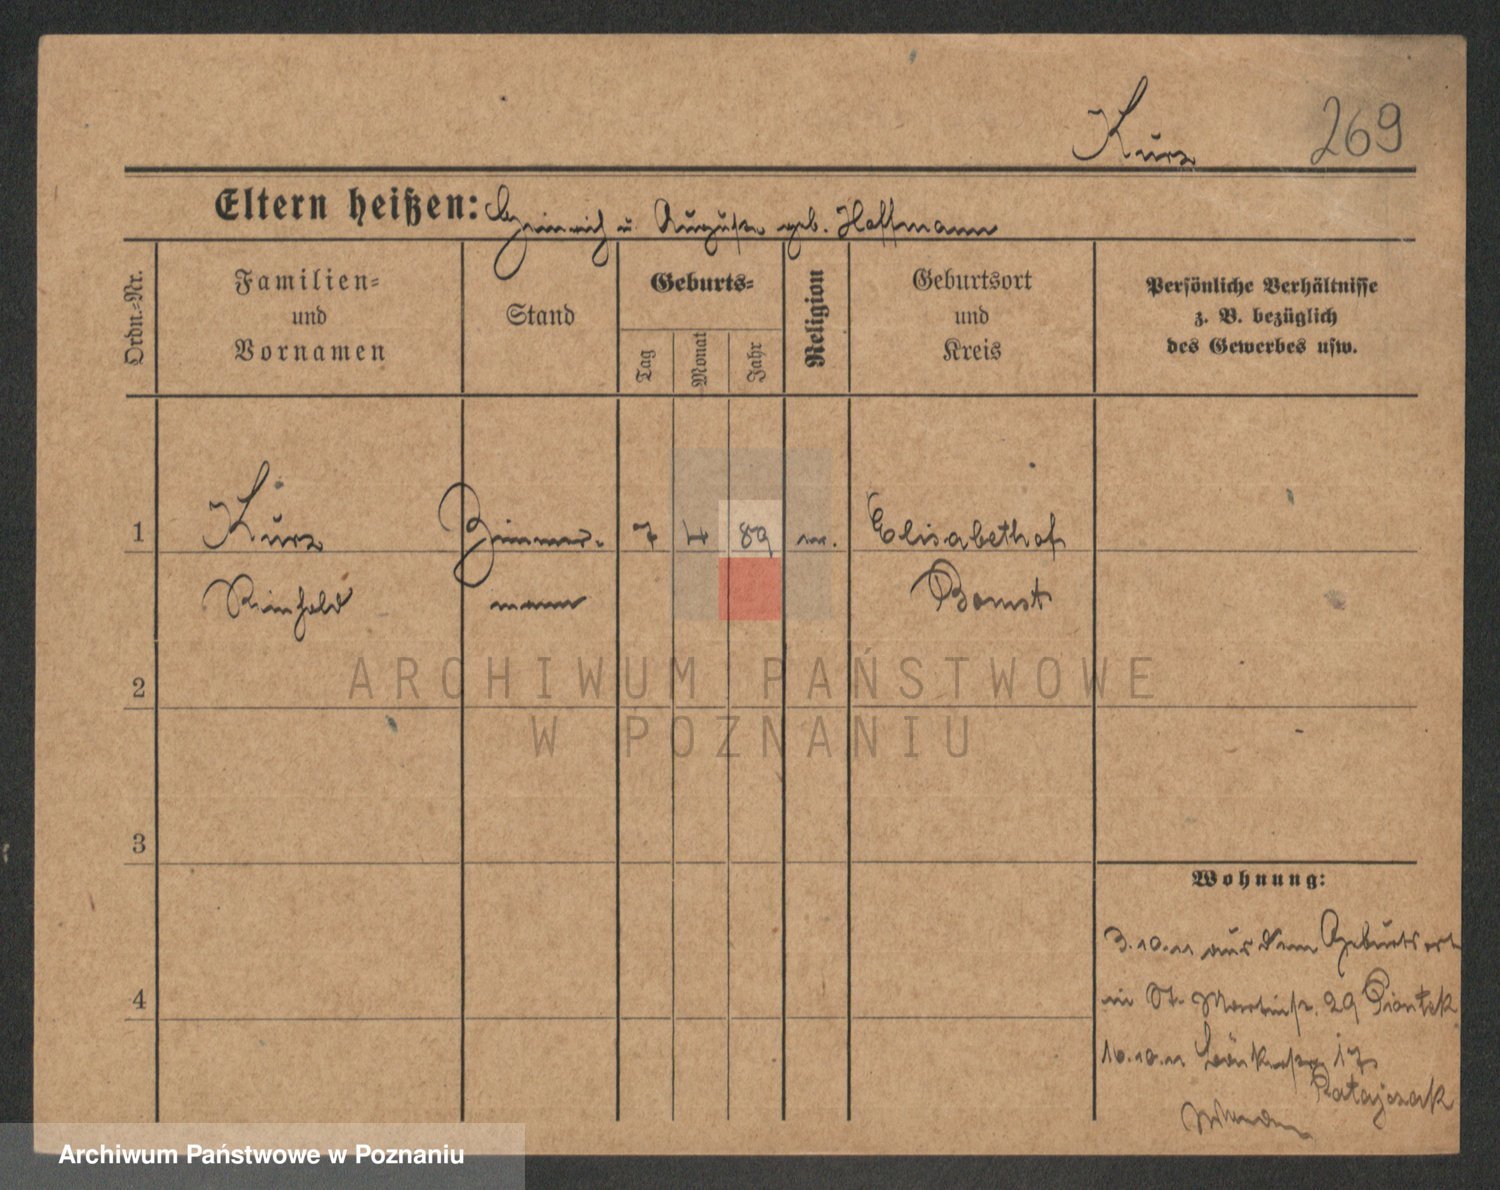 Kurz 269
Eltern heißen: Heinrich u Auguste geb. Hoffmann
Ordn.-Nr.
Familien-
und
Vornamen
Stand
Geburts-
Tag
Monat
Jahr
Religion
Geburtsort
und
Kreis
Persönliche Verhältnisse
z. B. bezüglich
des Gewerbes usw.
1 Kurz Zimmer- 7 4 89 Elisabethof
Reinhold mann Bomst
2
3
4
Wohnung:
3.10.11 aus dem Geburtsort
in St. Martinstr. 29 Piontek
10.10.11 17
Ratajczak
ARCHIWUM PAŃSTWOWE
W POZNANIU
Archiwum Państwowe w Poznaniu